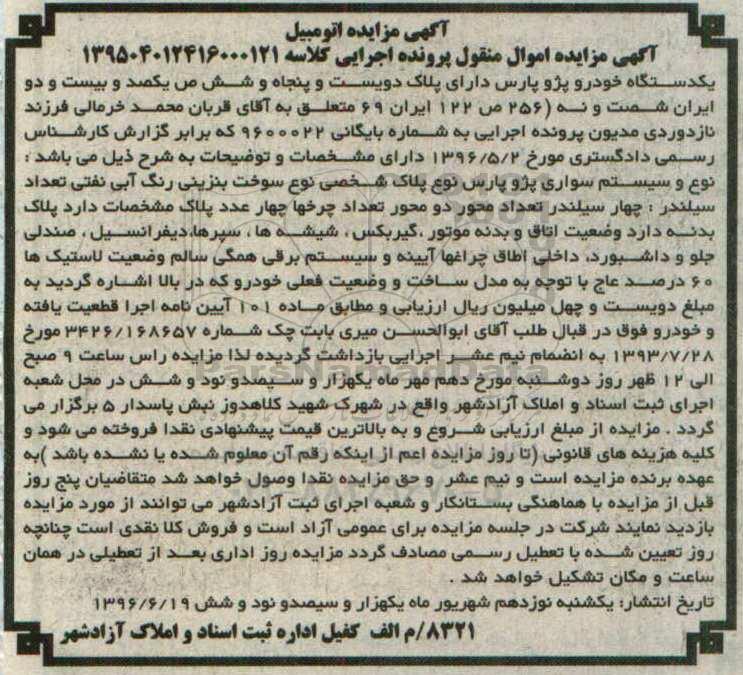 آگهی مزایده اتومبیل
آگهی مزایده اموال منقول پرونده اجرایی کلاسه ۱۳۹۵۰۴۰۱۲۴۱۶۰۰۰۱۲۱
یکدستگاه خودرو پژو پارس دارای پلاک دویست و پنجاه و شش ص یکصد و بیست و دو
ایران شصت و نه (۲۵۶ ص ۱۲۲ ایران ۶۹ متعلق به آقای قربان محمد خرمالی فرزند
نازدوردی مدیون پرونده اجرایی به شماره بایگانی ۹۶۰۰۰۲۲ که برابر گزارش کارشناس
رسمی دادگستری مورخ ۱۳۹۶/۵/۲ دارای مشخصات و توضیحات به شرح ذیل می باشد :
نوع و سیستم سواری پژو پارس نوع پلاک شخصی نوع سوخت بنزینی رنگ آبی نفتی تعداد
سیلندر : چهار سیلندر تعداد محور دو محور تعداد چرخها چهار عدد پلاک مشخصات دارد پلاک
بدنه دارد وضعیت اتاق و بدنه موتور ،گیربکس ، شیشه ها ، سپرها،دیفرانسیل ، صندلی
جلو و داشبورد، داخلی اطاق چراغها آیینه و سیستم برقی همگی سالم وضعیت لاستیک ها
۶۰ درصد عاج با توجه به مدل ساخت و وضعیت فعلی خودرو که در بالا اشاره گردید به
مبلغ دویست و چهل میلیون ریال ارزیابی و مطابق ماده ۱۰۱ آیین نامه اجرا قطعیت یافته
و خودرو فوق در قبال طلب آقای ابوالحسن میری بابت چک شماره ۳۴۲۶/۱۶۸۶۵۷ مورخ
۱۳۹۳/۷/۲۸ به انضمام نیم عشر اجرایی بازداشت گردیده لذا مزایده راس ساعت ۹ صبح
الی ۱۲ ظهر روز دوشنبه مورخ دهم مهر ماه یکهزار و سیصدو نود و شش در محل شعبه
اجرای ثبت اسناد و املاک آزادشهر واقع در شهرک شهید کلاهدوز نبش پاسدار ۵ برگزار می
گردد . مزایده از مبلغ ارزیابی شروع و به بالاترین قیمت پیشنهادی نقدا فروخته می شود و
کلیه هزینه های قانونی (تا روز مزایده اعم از اینکه رقم آن معلوم شده یا نشده باشد )به
عهده برنده مزایده است و نیم عشر و حق مزایده نقدا وصول خواهد شد متقاضیان پنج روز
قبل از مزایده با هماهنگی بستانکار و شعبه اجرای ثبت آزادشهر می توانند از مورد مزایده
بازدید نمایند شرکت در جلسه مزایده برای عمومی آزاد است و فروش کلا نقدی است چنانچه
روز تعیین شده با تعطیل رسمی مصادف گردد مزایده روز اداری بعد از تعطیلی در همان
ساعت و مکان تشکیل خواهد شد .
تاریخ انتشار: یکشنبه نوزدهم شهریور ماه یکهزار و سیصدو نود و شش ۱۳۹۶/۶/۱۹
۸۳۲۱/م الف کفیل اداره ثبت اسناد و املاک آزادشهر
ParsNamadData